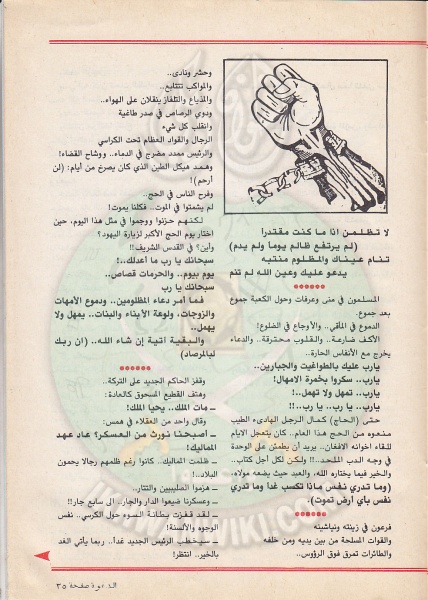 لا تظلمن اذا ما كنت مقتدرا
(لم يرتفع ظالم يوما ولم يدم)
تنام عيناك والمظلوم منتبه
يدعو عليك وعين الله لم تنم
المسلمون في منى وعرفات وحول الكعبة جموع
بعد جموع.
الدموع في المآقي.. والأوجاع في الضلوع!
الأكف ضارعة.. والقلوب محترقة.. والدعاء
يخرج مع الأنفاس الحارة..
يارب عليك بالطواغيت والجبارين..
يارب.. سكروا بخمرة الامهال!
يارب.. تمهل ولا تهمل..!
يارب.. يا رب.. يا رب..!!
حتى (الحاج) كمال الرجل الهادىء الطيب
منعوه من الحج هذا العام.. كان يتعجل الايام
للقاء اخوانه الافغان.. يريد أن يطمئن على الوحدة
في وجه الدب الملحد..!! ولكن لكل أجل كتاب..
والخير فيما يختاره الله، والعبد حيث يضعه مولاه.
(وما تدري نفس ماذا تكسب غدا وما تدري
نفس بأي أرض تموت).
فرعون في زينته ونياشينه
والقوات المسلحة من بين يديه ومن خلفه
والطائرات تمرق فوق الرؤوس..
وحشر ونادى..
والمواكب تتتابع..
والمذياع والتلفاز ينقلان على الهواء..
ودوي الرصاص في صدر طاغية
وانقلب كل شيء
الرجال والقواد العظام تحت الكراسي
والرئيس ممدد مضرج في الدماء.. ووشاح القضاء!
وهمد هيكل الطين الذي كان يصرخ من أيام: (لن
ارحم)!
وفرح الناس في الحج..
لم يشمتوا في الموت.. فكلنا يموت!
لكنهم حزنوا ووجموا في مثل هذا اليوم، حين
اختار يوم الحج الأكبر لزيارة اليهود؟
وأين؟ في القدس الشريف!!
سبحانك يا رب ما أعدلك..!
يوم بيوم.. والحرمات قصاص..
سبحانك يا رب
فما أمر دعاء المظلومين.. ودموع الأمهات
والزوجات، ولوعة الأبناء والبنات.. يمهل ولا
يهمل..
والبقية آتية إن شاء الله.. (ان ربك
لبالمرصاد)
وقفز الحاكم الجديد على التركة..
وهتف القطيع المسحوق كالعادة:
ــ مات الملك.. يحيا الملك!
وقال واحد من العقلاء في همس:
ــ أصبحنا نورث من العسكر؟ عاد عهد
المماليك!
ــ ظلمت المماليك.. كانوا رغم ظلمهم رجالا يحمون
البلاد..!
ــ هزموا الصليبيين والتتار..
ــ وعسكرنا ضيعوا الدار والجار.. الى سابع جار!!
ــ لقد قفزت بطانة السوء حول الكرسي.. نفس
الوجوه والألسنة!
ــ سيخطب الرئيس الجديد غداً.. ربما يأتي الغد
بالخير.. انتظر!
الدعوة صفحة ٣٥